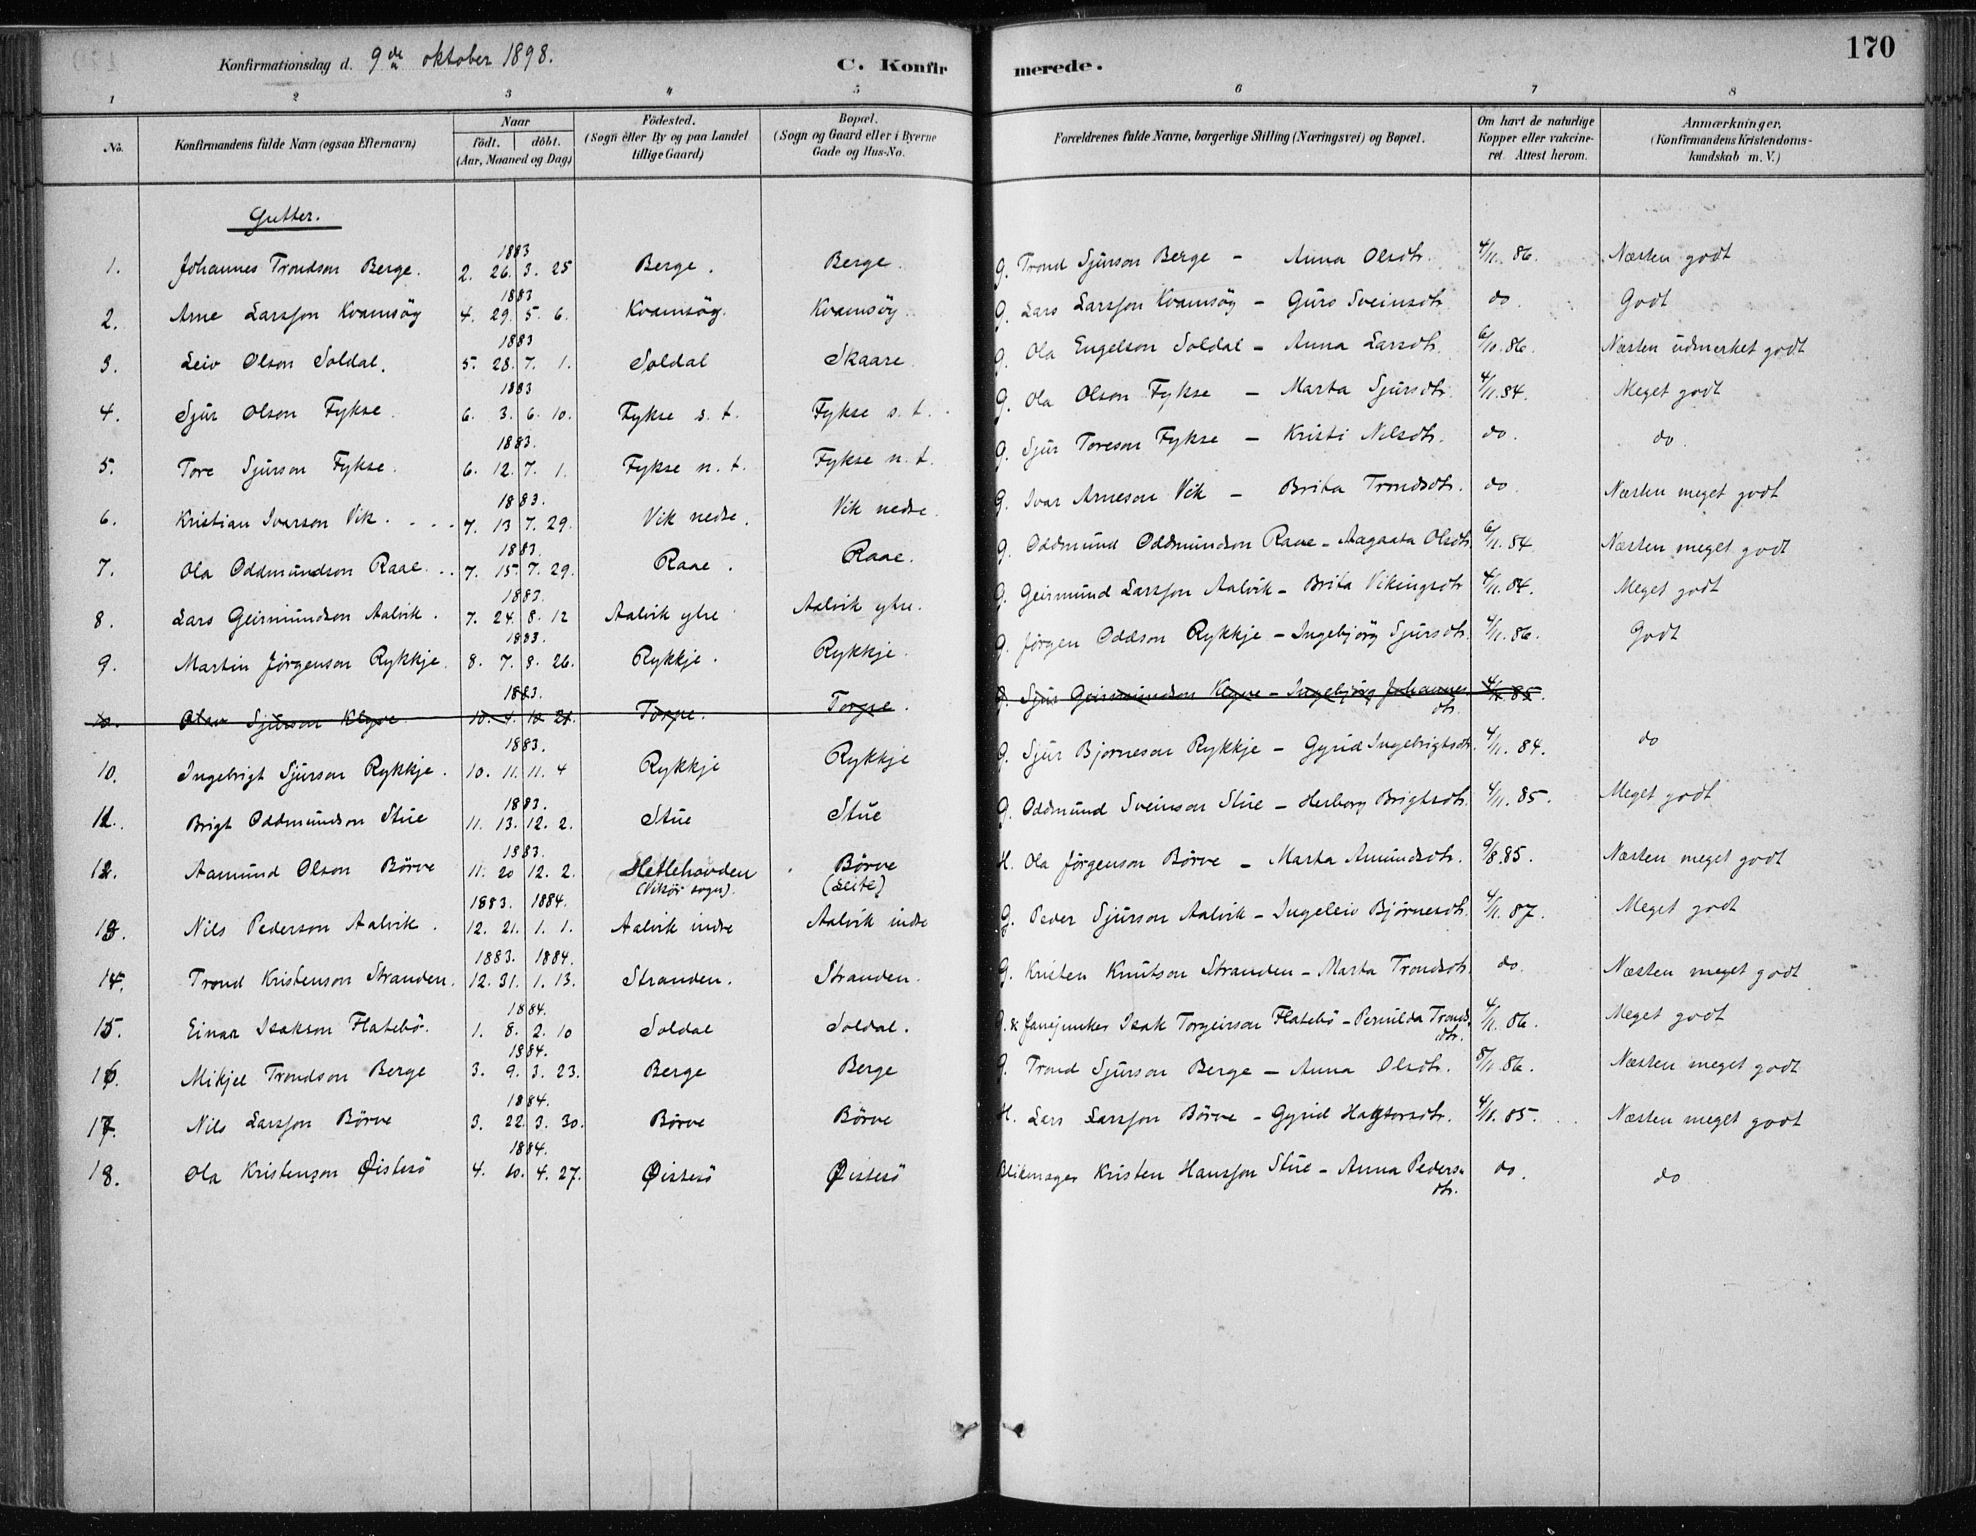 170
Konfirmationsdag d. 9de oktober 1898.
C. Konfirmerede.
1 2 3 4 5 6 7 8
No. Konfirmandens fulde Navn (ogsaa Efternavn) Naar födt. döbt. (Aar, Maaned og Dag) Födested. (Sogn eller By og paa Landet tillige Gaard) Bopæl. (Sogn og Gaard eller i Byerne Gade og Hus-No. Forældrenes fulde Navne, borgerlige Stilling (Næringsvei) og Bopæl. Om havt de naturlige Kopper eller vakcineret. Attest herom. Anmærkninger. (Konfirmandens Kristendomskundskab m. V.)
Gutter.
1883
1. Johannes Trondson Berge. 2. 26. 3. 25 Berge. Berge. G. Trond Sjurson Berge - Anna Olsdtr. 4/11. 86. Næsten godt
1883
2. Arne Larsson Kvamsöy 4. 29. 5. 6. Kvamsöy. Kvamsöy. G. Lars Larsson Kvamsöy - Guro Sveinsdtr. do. Godt
1883
3. Leiv Olson Soldal. 5. 28. 7. 1. Soldal Skaare. G. Ola Engelson Soldal - Anna Larsdtr. 6/10. 86. Næsten udmerket godt
1883
4. Sjur Olson Fykse. 6. 3. 6. 10. Fykse s. t. Fykse s. t. G. Ola Olson Fykse - Marta Sjursdtr. 4/11. 84. Meget godt
1883.
5. Tore Sjurson Fykse. 6. 12. 7. 1. Fykse n. t. Fykse n. t. G. Sjur Toreson Fykse - Kristi Nilsdtr. do. do.
1883.
6. Kristian Ivarson Vik. 7. 13 7. 29. Vik nedre. Vik nedre. G. Ivar Arneson Vik - Brita Trondsdtr. do. Næsten meget godt
1883.
7. Ola Oddmundson Raae. 7. 15. 7. 29. Raae. Raae. G. Oddmund Oddmundson Raae - Aagaata Olsdtr. 6/11. 84. Næsten meget godt
1883.
8. Lars Geirmundson Aalvik. 7. 24. 8. 12 Aalvik ytre Aalvik ytre. G. Geirmund Larsson Aalvik - Brita Vikingsdtr. 4/11. 84. Meget godt
1883.
9. Martin Jørgenson Rykkje. 8. 7. 8. 26. Rykkje. Rykkje. G. Jørgen Oddson Rykkje - Ingebjörg Sjursdtr. 4/11. 86. Godt
1883.
10. Olav Sjurson Klyve 10. 4. 10. 21. Torpe. Torpe. G. Sjur Geirmundson Klyve - Ingebjörg Johannesdtr. 4/11. 85.
1883.
10. Ingebrigt Sjurson Rykkje. 10. 11. 11. 4 Rykkje Rykkje G. Sjur Bjorneson Rykkje - Gyrid Ingebrigtsdtr. 4/11. 84. do
1883.
11. Brigt Oddmundson Stue 11. 13. 12. 2. Stue Stue G. Oddmund Sveinson Stue - Herborg Brigtsdtr. 4/11. 85. Meget godt
1883.
12. Aamund Olson Börve 11. 20 12. 2. Hetlehovden (Vikör sogn). Börve (Leite) H. Ola Jörgenson Börve - Marta Amundsdtr. 9/8. 85. Næsten meget godt
1883. 1884.
13. Nils Pederson Aalvik. 12. 21. 1. 1. Aalvik indre Aalvik indre G. Peder Sjurson Aalvik - Ingeleiv Bjørnesdtr. 4/11. 87. Meget godt
1883. 1884.
14. Trond Kristenson Stranden. 12. 31. 1. 13. Stranden. Stranden. G. Kristen Knutson Stranden - Marta Trondsdtr. do. Næsten meget godt
1884.
15. Einar Isakson Flatebö. 1. 8. 2. 10 Soldal Soldal. G. & Isak Torgeirson Flatebö - Pernilda Trondsdtr. 4/11. 86. Meget godt
1884.
16. Mikjel Trondson Berge 3. 9. 3. 23. Berge Berge G. Trond Sjurson Berge - Anna Olsdtr. 8/11. 86. Næsten meget godt
1884.
17. Nils Larsson Börve 3. 22. 3. 30. Börve Börve H. Lars Larsson Börve - Gyrid Haktorsdtr. 4/11. 85. Næsten meget godt
1884.
18. Ola Kristenson Øistesö 4. 10. 4. 27. Øistesö Øistesö Blikmager Kristen Hansson Stue - Anna Pedersdtr. do. do